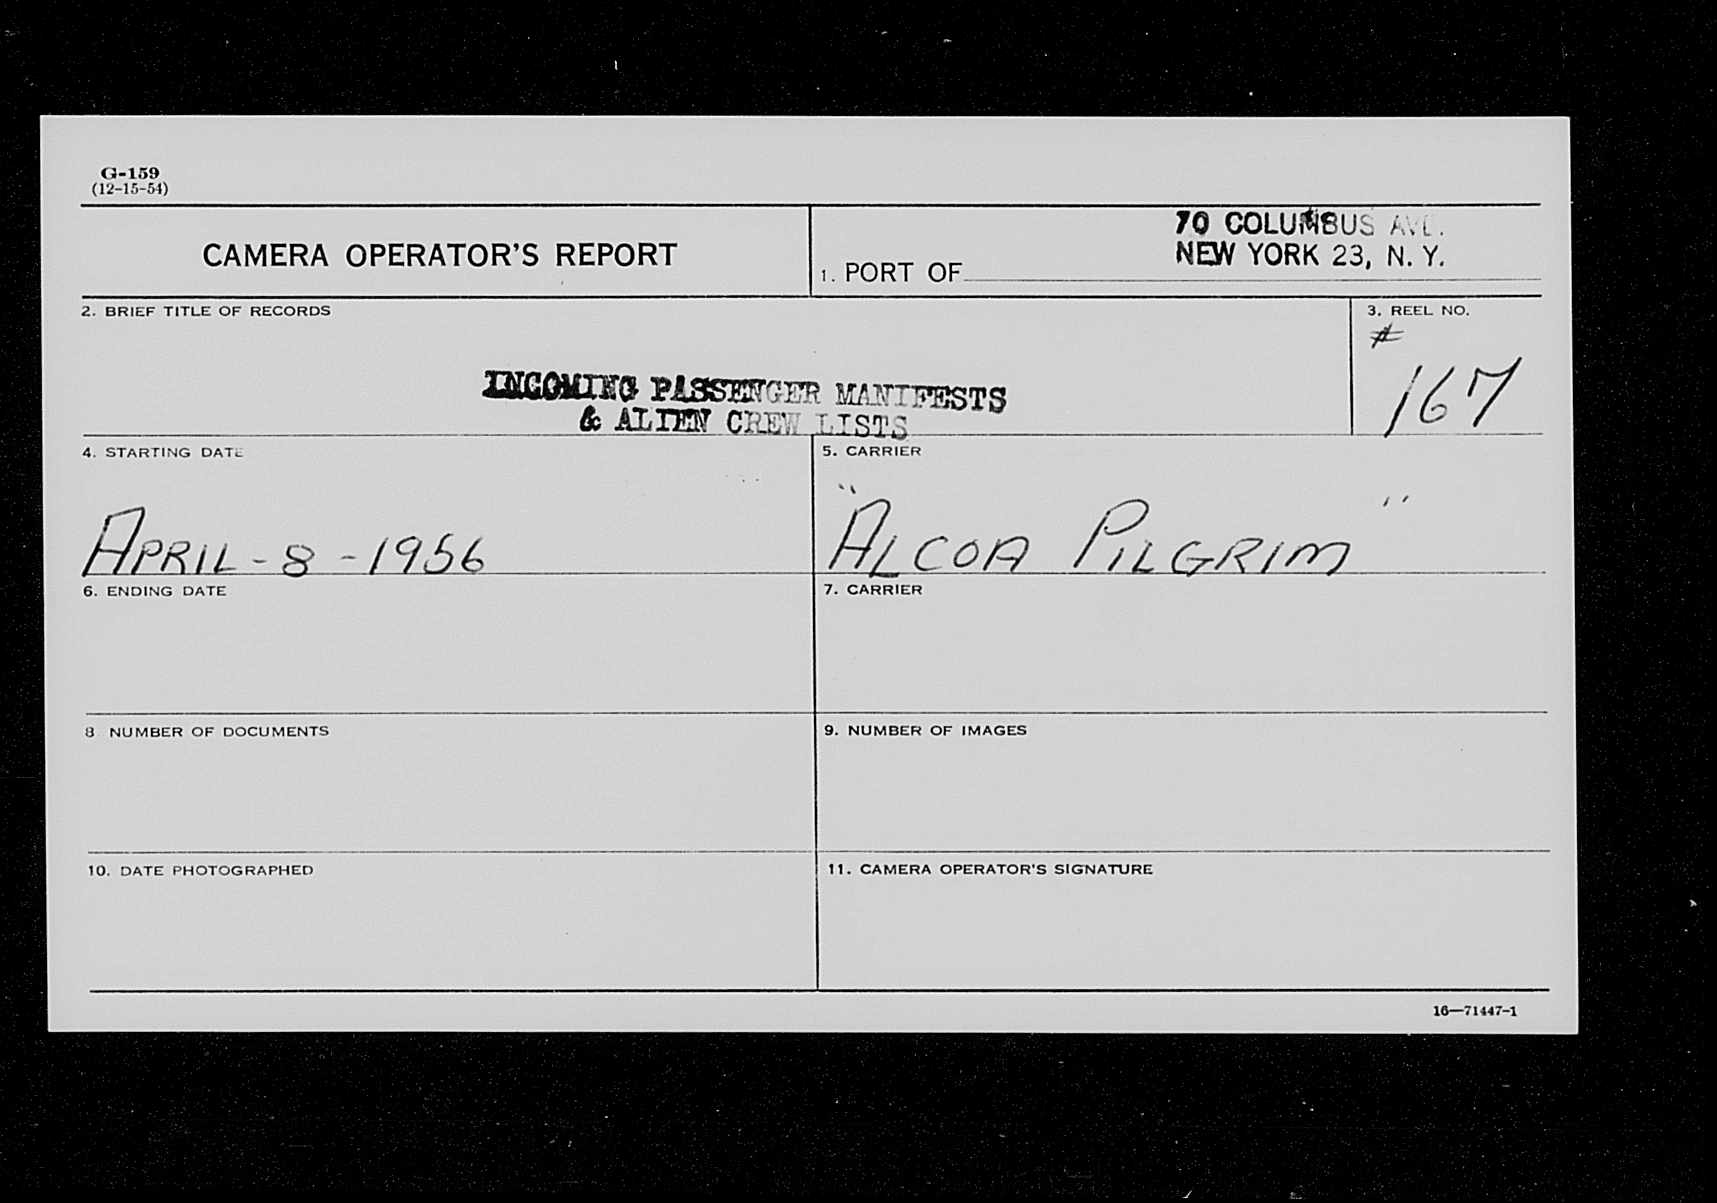 G-159
(12-15-54)
CAMERA OPERATOR'S REPORT
70 COLUMBUS AVE.
NEW YORK 23, N. Y.
1. PORT OF
2. BRIEF TITLE OF RECORDS
3. REEL NO.
#
167
INCOMING PASSENGER MANIFESTS
& ALIEN CREW LISTS
4. STARTING DATE
5. CARRIER
APRIL - 8 - 1956
"ALCOA PILGRIM"
6. ENDING DATE
7. CARRIER
8 NUMBER OF DOCUMENTS
9. NUMBER OF IMAGES
10. DATE PHOTOGRAPHED
11. CAMERA OPERATOR'S SIGNATURE
16—71447-1